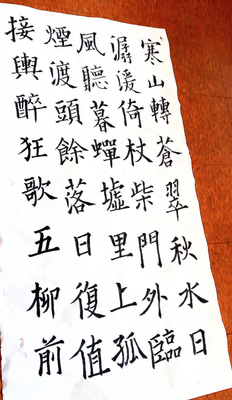 寒山轉蒼翠秋水日
潺湲倚杖柴門外臨
風聽暮蟬墟里上孤
煙渡頭餘落日復值
接輿醉狂歌五柳前